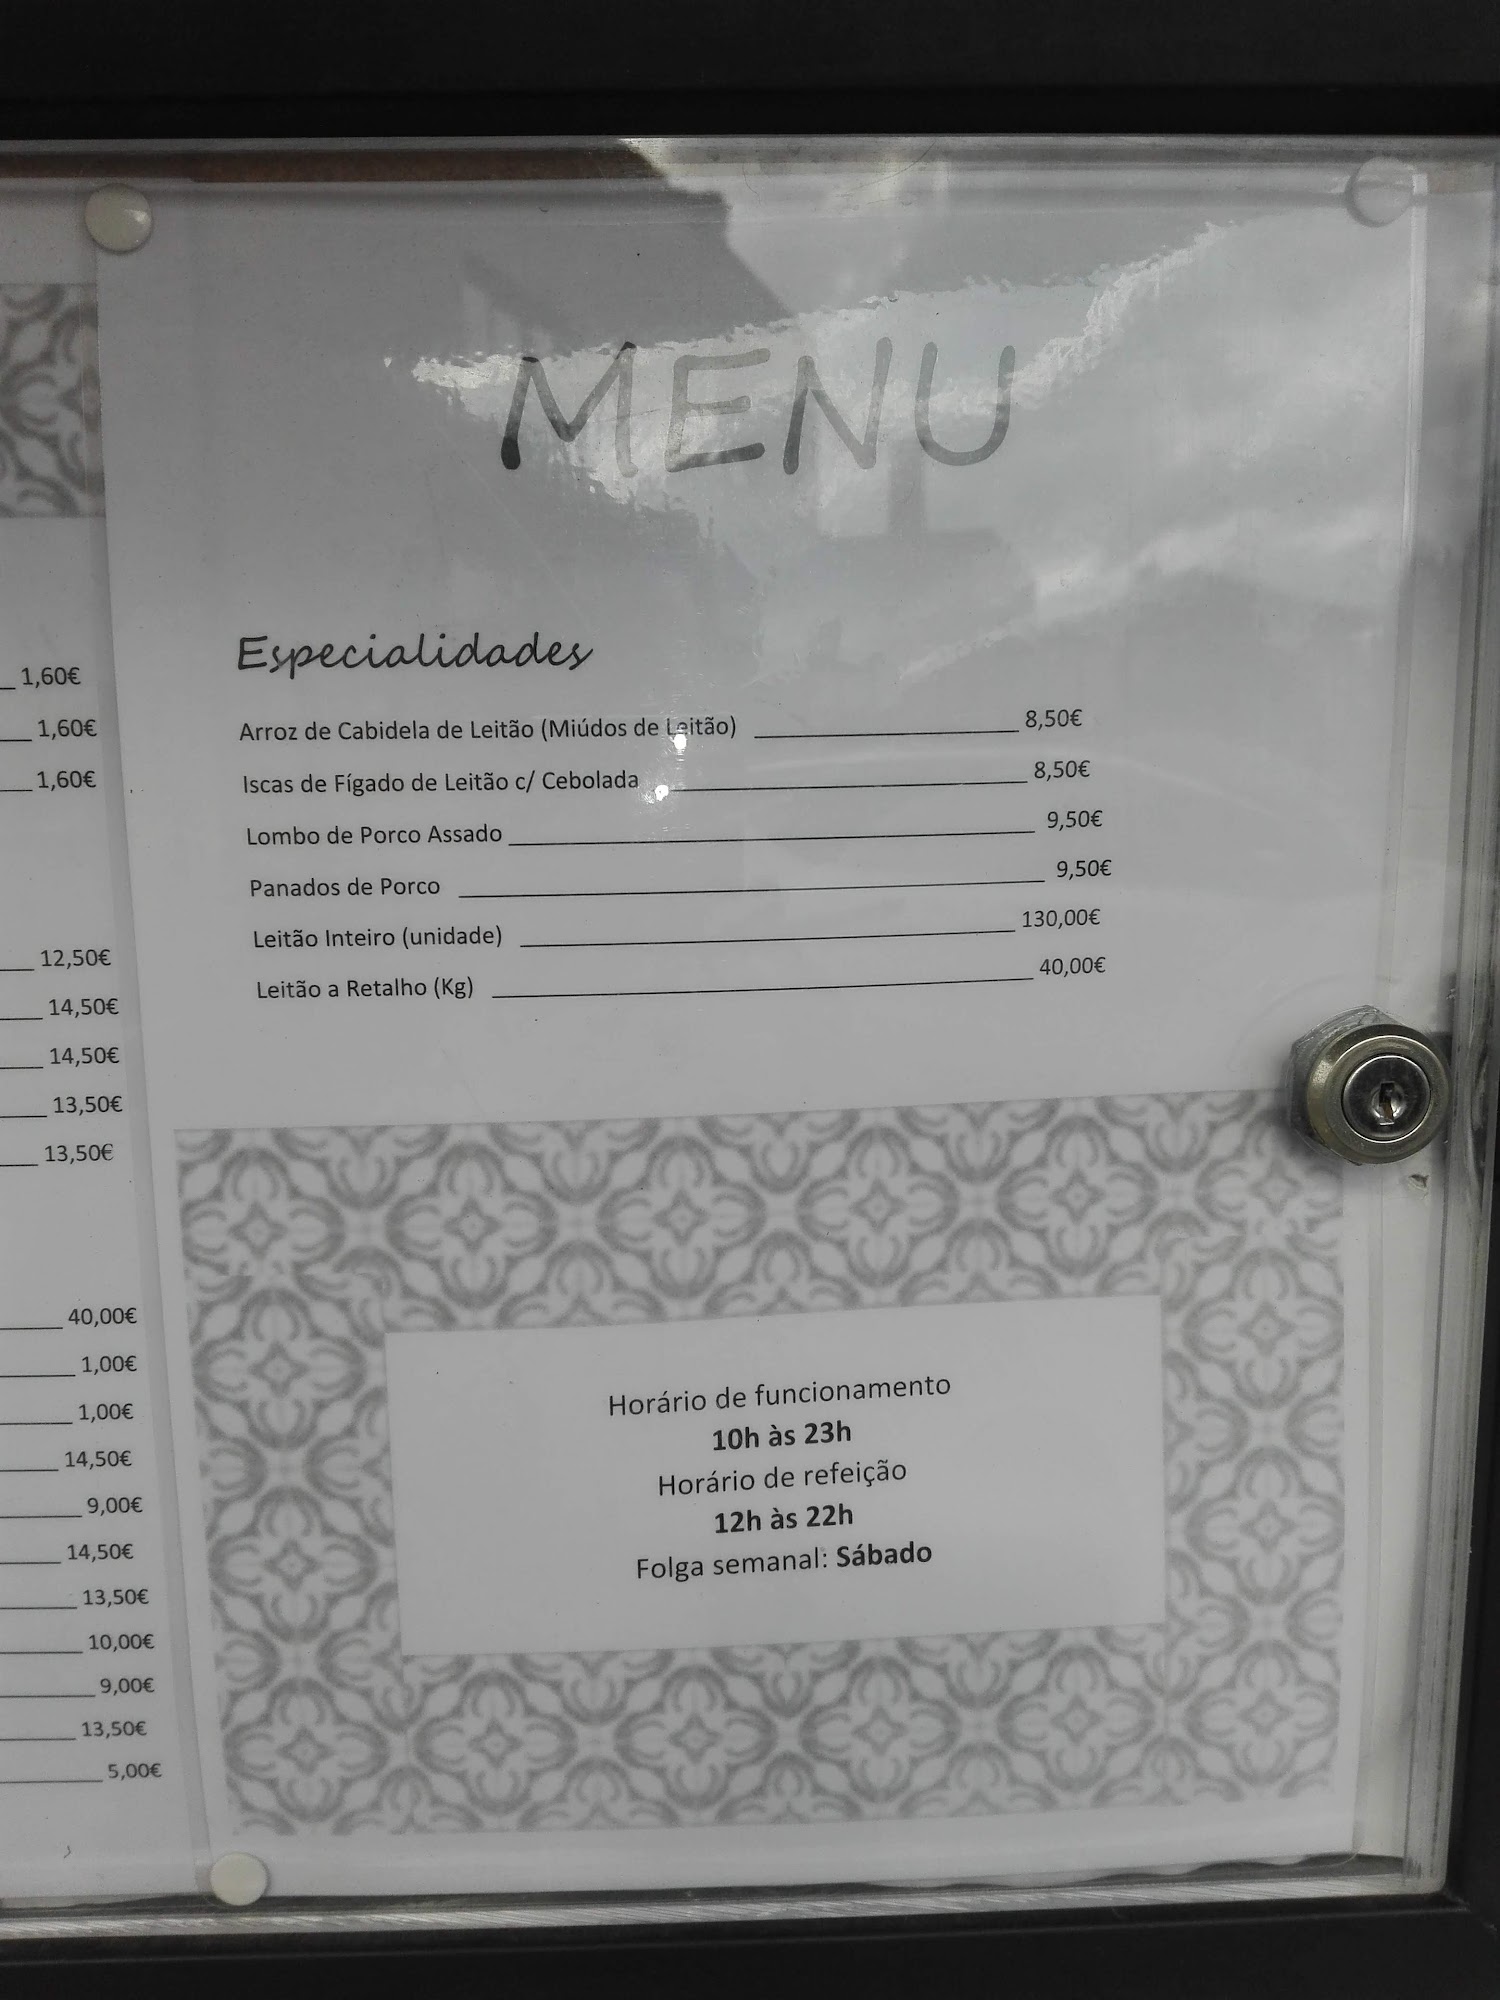 1,60€
1,60€
1,60€
12,50€
14,50€
14,50€
13,50€
13,50€
40,00€
1,00€
1,00€
14,50€
9,00€
14,50€
13,50€
10,00€
9,00€
13,50€
5,00€
MENU
Especialidades
Arroz de Cabidela de Leitão (Miúdos de Leitão) 8,50€
Iscas de Fígado de Leitão c/ Cebolada 8,50€
Lombo de Porco Assado 9,50€
Panados de Porco 9,50€
Leitão Inteiro (unidade) 130,00€
Leitão a Retalho (Kg) 40,00€
Horário de funcionamento
10h às 23h
Horário de refeição
12h às 22h
Folga semanal: Sábado